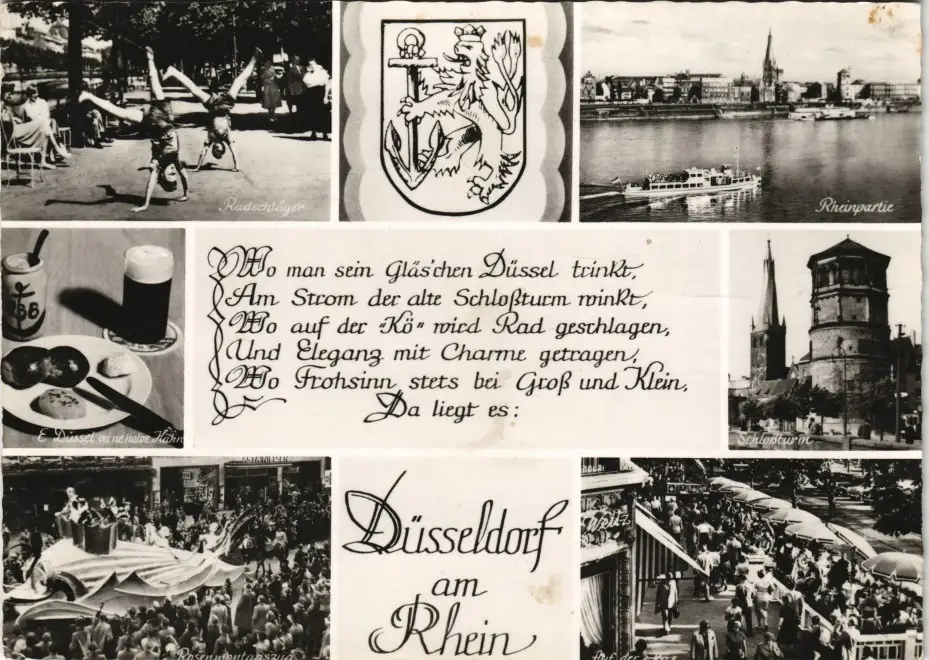 Radschläger
Rheinpartie
Wo man sein Gläs'chen Düssel trinkt,
Am Strom der alte Schloßturm winkt,
Wo auf der „Kö“ wird Rad geschlagen,
Und Eleganz mit Charme getragen,
Wo Frohsinn stets bei Groß und Klein,
Da liegt es:
BB
E Düssel un ne halve Hahn
Schloßturm
Rosenmontagszug
Düsseldorf
am
Rhein
Auf der